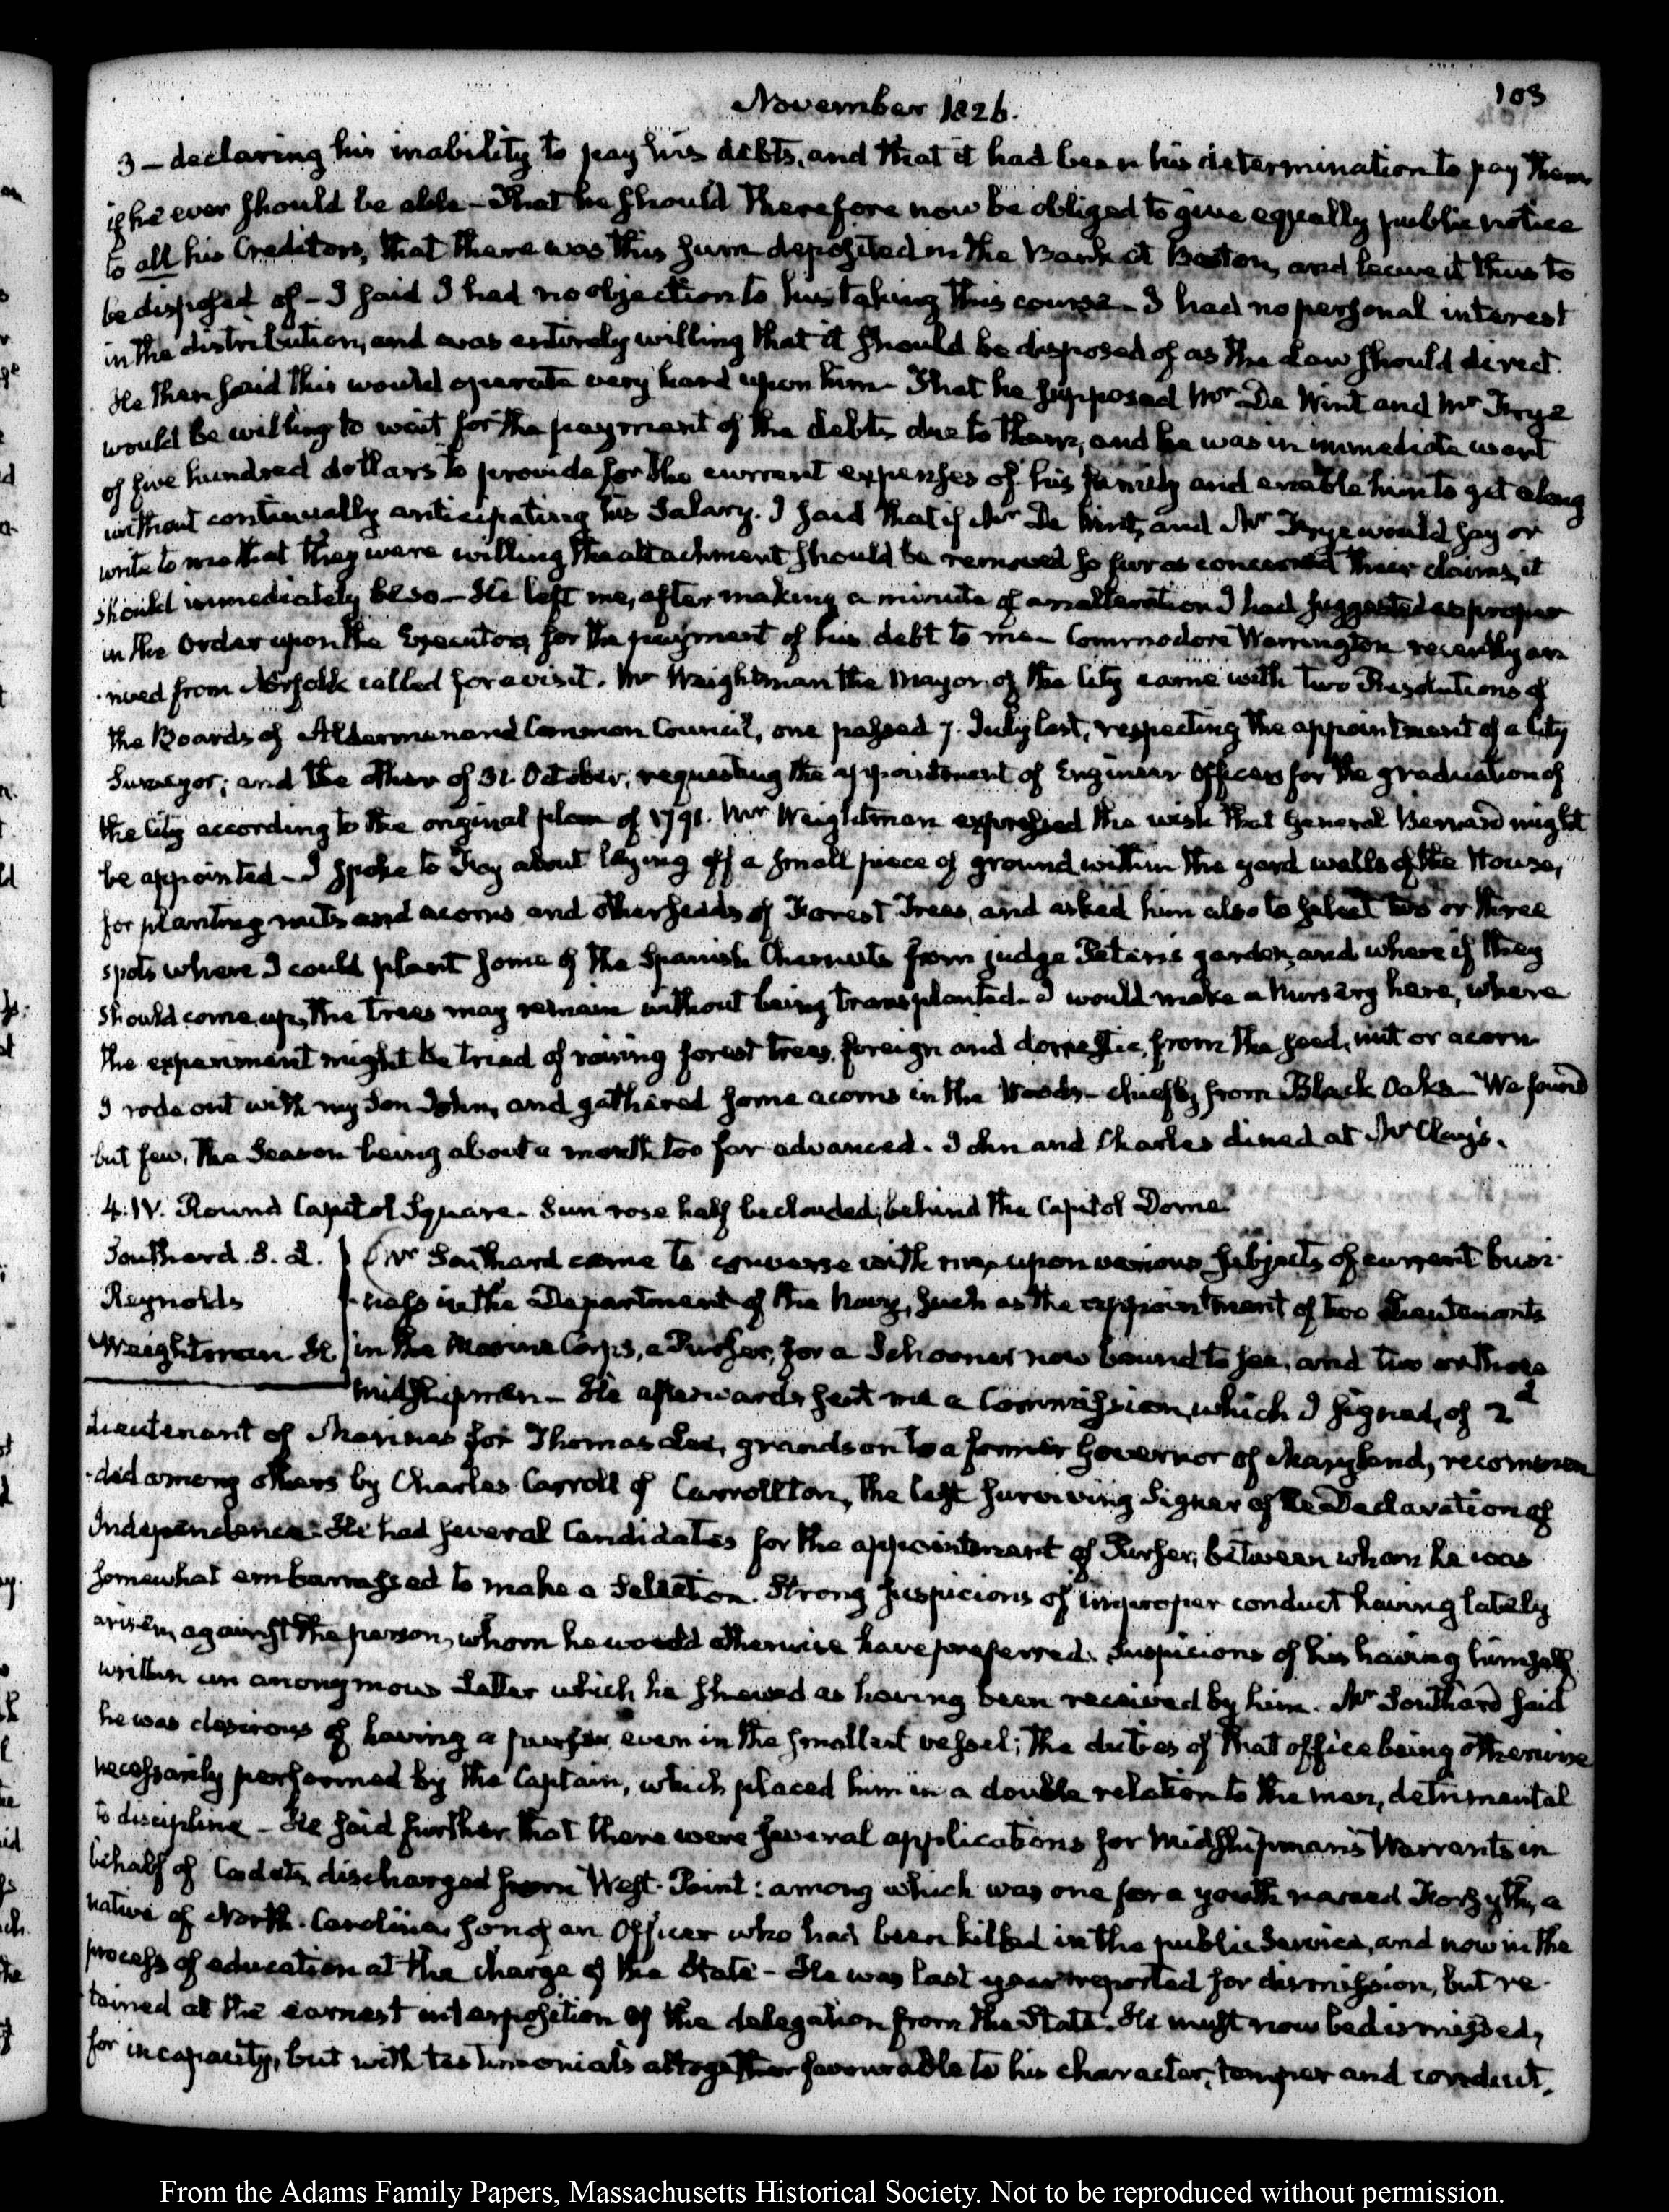 November 1826.
103
3 — declaring his inability to pay his debts, and that it had been his determination to pay them
if he ever should be able — That he should therefore now be obliged to give equally public notice
to all his Creditors, that there was this sum deposited in the Bank at Boston, and leave it thus to
be disposed of — I said I had no objection to his taking this course — I had no personal interest
in the distribution, and was entirely willing that it should be disposed of as the Law should direct.
He then said this would operate very hard upon him — That he supposed Mr De Wint and Mr Frye
would be willing to wait for the payment of the debts due to them, and he was in immediate want
of five hundred dollars to provide for the current expenses of his family and enable him to get along
without continually anticipating his Salary. I said that if Mr De Wint, and Mr Frye would say or
write to me that they were willing the attachment should be removed so far as concerned their claims, it
should immediately be so — He left me, after making a minute of an alteration I had suggested as proper
in the Order upon the Executors for the payment of his debt to me — Commodore Warrington recently ar-
-rived from Norfolk called for a visit. Mr Weightman the Mayor of the City came with two Resolutions of
the Boards of Aldermen and Common Council, one passed 7. July last, respecting the appointment of a City
Surveyor; and the other of 31. October, requesting the appointment of Engineer Officers for the graduation of
the City according to the original plan of 1791. Mr Weightman expressed the wish that General Bernard might
be appointed — I spoke to Foy about laying off a small piece of ground within the yard walls of the House,
for planting nuts and acorns and other seeds of Forest Trees, and asked him also to select two or three
spots where I could plant some of the Spanish Chesnuts from judge Peters's garden, and where if they
should come up, the trees may remain without being transplanted — I would make a Nursery here, where
the experiment might be tried of raising forest trees, foreign and domestic, from the seed, nut or acorn
I rode out with my Son John, and gathered some acorns in the Woods — chiefly from Black Oaks — We found
but few, the Season being about a month too far advanced. John and Charles dined at Mr Clay's.
4. IV. Round Capitol Square — Sun rose half beclouded, behind the Capitol Dome.
Southard. S. L. Mr Southard came to converse with me, upon various subjects of current busi-
Reynolds -ness in the Department of the Navy, such as the appointment of two Lieutenants
Weightman in the Marine Corps, a Purser, for a Schooner now bound to sea, and two or three
midshipmen — He afterwards sent me a Commission, which I signed, of 2d
Lieutenant of Marines for Thomas Lee, grandson to a former Governor of Maryland, recommen
-ded among others by Charles Carroll of Carrollton, the last surviving Signer of the Declaration of
Independence. He had several Candidates for the appointment of Purser, between whom he was
somewhat embarrassed to make a Selection. Strong suspicions of improper conduct having lately
arisen, against the person, whom he would otherwise have preferred. Suspicions of his having himself
written an anonymous Letter which he shewed as having been received by him. Mr Southard said
he was desirous of having a purser even in the smallest vessel; the duties of that office being otherwise
necessarily performed by the Captain, which placed him in a double relation to the men, detrimental
to discipline — He said further that there were several applications for Midshipman's Warrants in
behalf of Cadets, discharged from West-Point: among which was one for a youth named Forsyth, a
native of North-Carolina, son of an Officer who had been killed in the public Service, and now in the
process of education at the charge of the State — He was last year reported for dismission, but re-
-tained at the earnest interposition of the delegation from the State. He must now be dismissed,
for incapacity, but with testimonials altogether favourable to his character, temper and conduct.
From the Adams Family Papers, Massachusetts Historical Society. Not to be reproduced without permission.